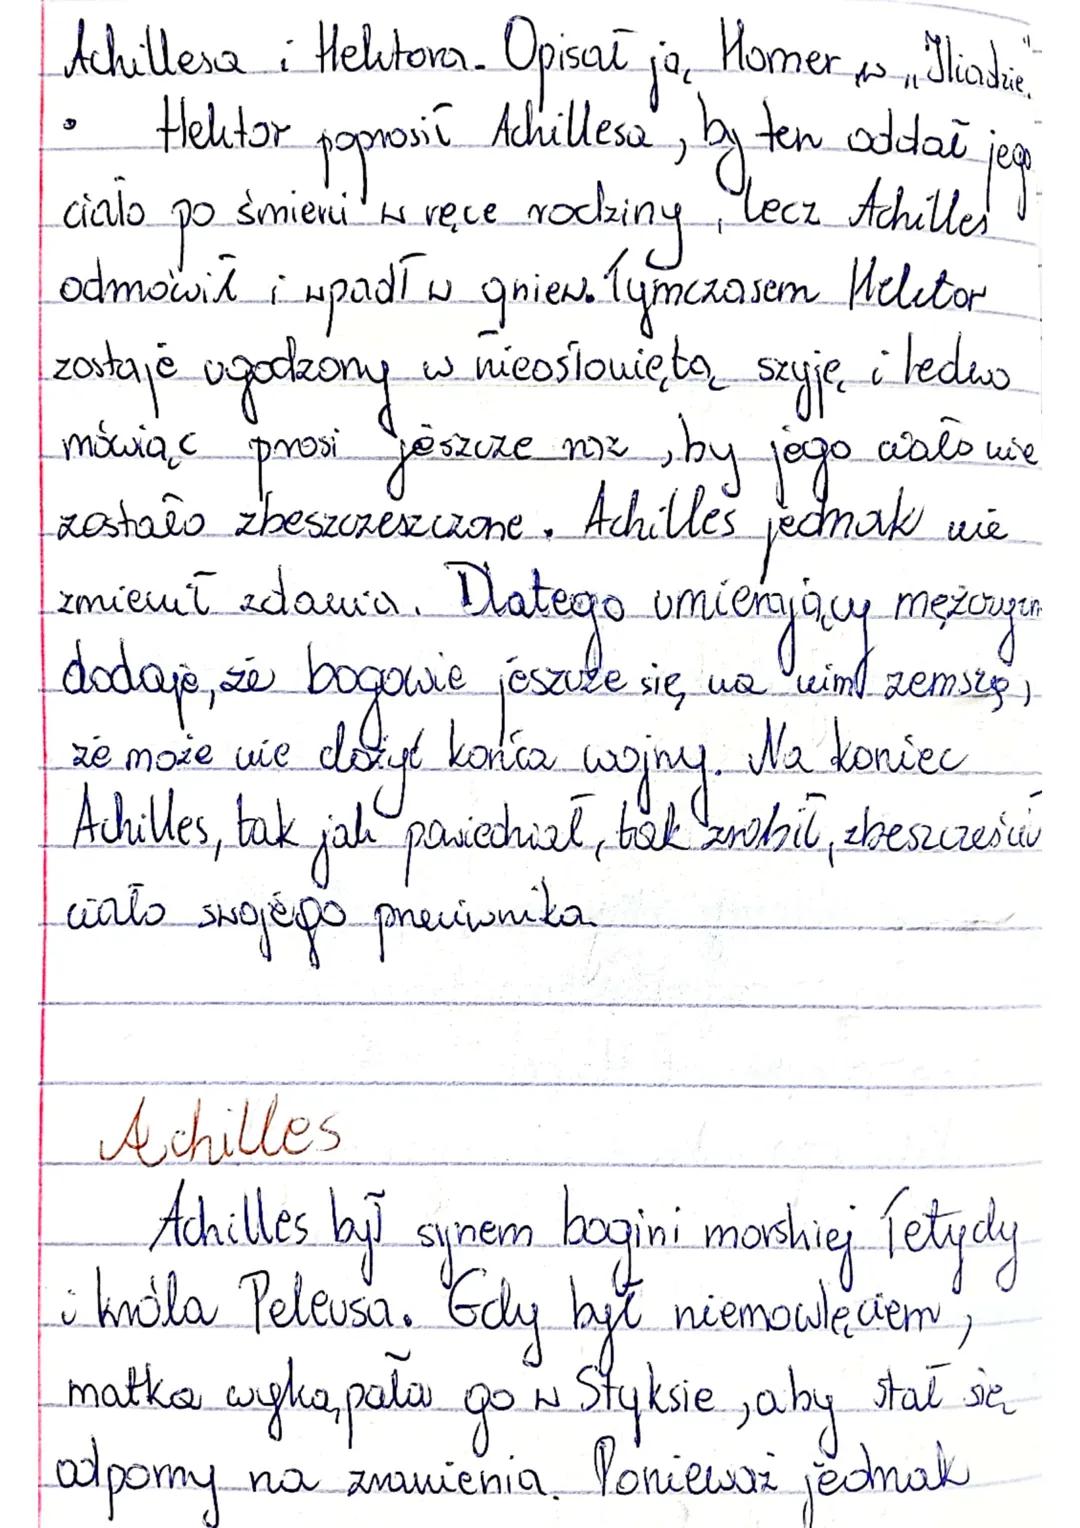 Achillesa i Hektora. Opisał ją Homer w „Iliadzie".
• Hektor poprosił Achillesa, by ten oddał jego
ciało po śmierci w ręce rodziny, lecz Achilles
odmówił i wpadł w gniew. Tymczasem Hektor
zostaje ugodzony w nieosłoniętą szyję i ledwo
mówiąc prosi jeszcze raz, by jego ciało nie
zostało zbeszczeszczone. Achilles jednak nie
zmienił zdania. Dlatego umierający mężczyzn
dodaje, że bogowie jeszcze się na nim zemszą,
że może nie dożyć końca wojny. Na koniec
Achilles, tak jak powiedział, tak zrobił, zbeszcześcił
ciało swojego przeciwnika
Achilles
Achilles był synem bogini morskiej Tetydy
i króla Peleusa. Gdy był niemowlęciem,
matka wykąpała go w Styksie, aby stał się
odporny na zranienia. Ponieważ jednak